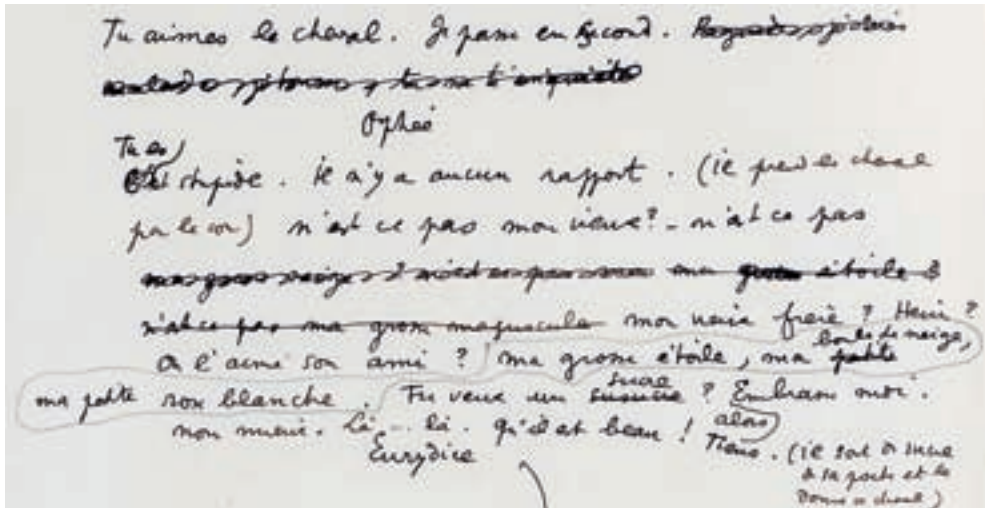 Tu aimes le cheval. Je passe en second.
Orphée
Tu es
C'est stupide. il n'y a aucun rapport. (il prend le cheval
par le cou) n'est ce pas mon vieux? - n'est ce pas
ma étoile
n'est ce pas ma grosse majuscule mon vieux frère? Hein?
boule de neige,
On l'aime son ami? ma grosse étoile, ma petite
ma petite rose blanche. Tu veux un sucre? Embrasse moi.
non mieux. Là... là. qu'il est beau! alors
Eurydice Tiens. (il sort du sucre
de sa poche et le
donne au cheval)